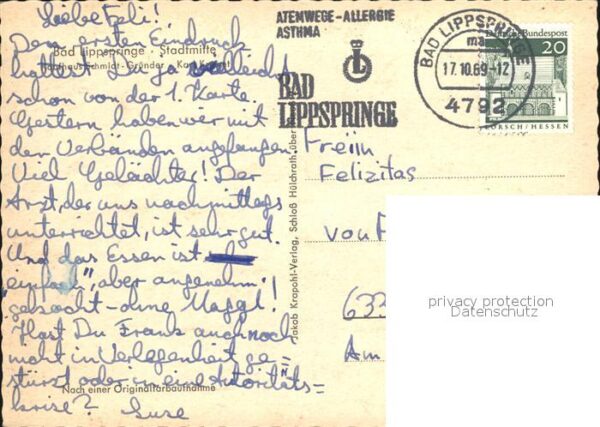 Liebe Feli!
Den ersten Eindruck
Bad Lippspringe · Stadtmitte
hattest Du ja vielleicht
Kaufhaus Schmidt-Gründer · Karl
schon von der 1. Karte.
Gestern haben wir mit
den Verbänden angefangen.
Viel Gelächter! Der
Arzt, der uns nachmittags
unterrichtet, ist sehr gut.
Und das Essen ist
"einfach", aber angenehm
gekocht - ohne Maggi!
Hast Du Frank auch noch
nicht in Verlegenheit ge=
stürzt oder in eine Autoritäts=
Nach einer Originalfarbaufnahme
krise? Suse
Jakob Krapohl-Verlag, Schloß Hülchrath über
ATEMWEGE-ALLERGIE
ASTHMA
BAD
LIPPSPRINGE
BAD LIPPSPRINGE
ma
17.10.69-12
4792
Deutsche Bundespost
20
LORSCH/HESSEN
Freiin
Felizitas
von F
633
Am
privacy protection
Datenschutz